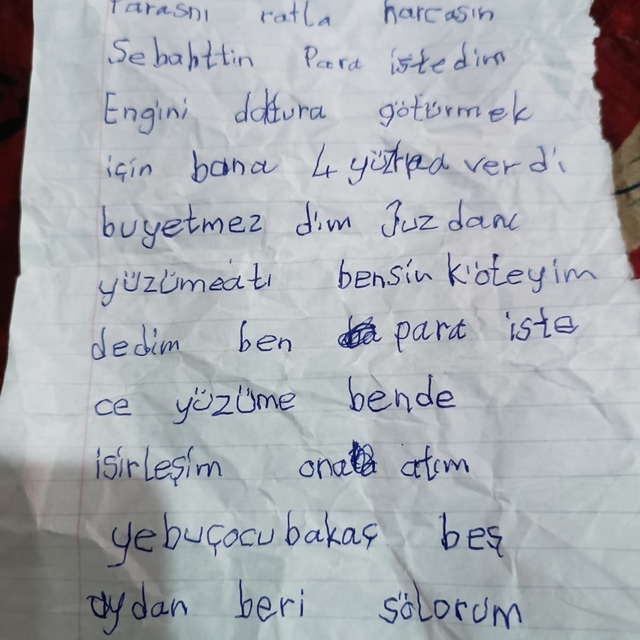 Parasnı ratla harcasın
Sebahttin Para istedim
Engini doktura götürmek
için bana 4 yüz verdi
buyetmez dim Juzdanı
yüzümeatı bensin köteyim
dedim ben para iste
ce yüzüme bende
isirleşim ona atım
yebuçocubakaç beş
aydan beri sölorum